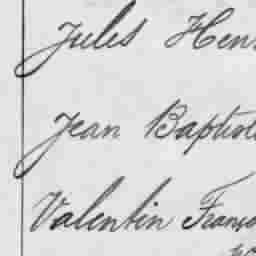 Jules Hen
Jean Baptist
Valentin Franço